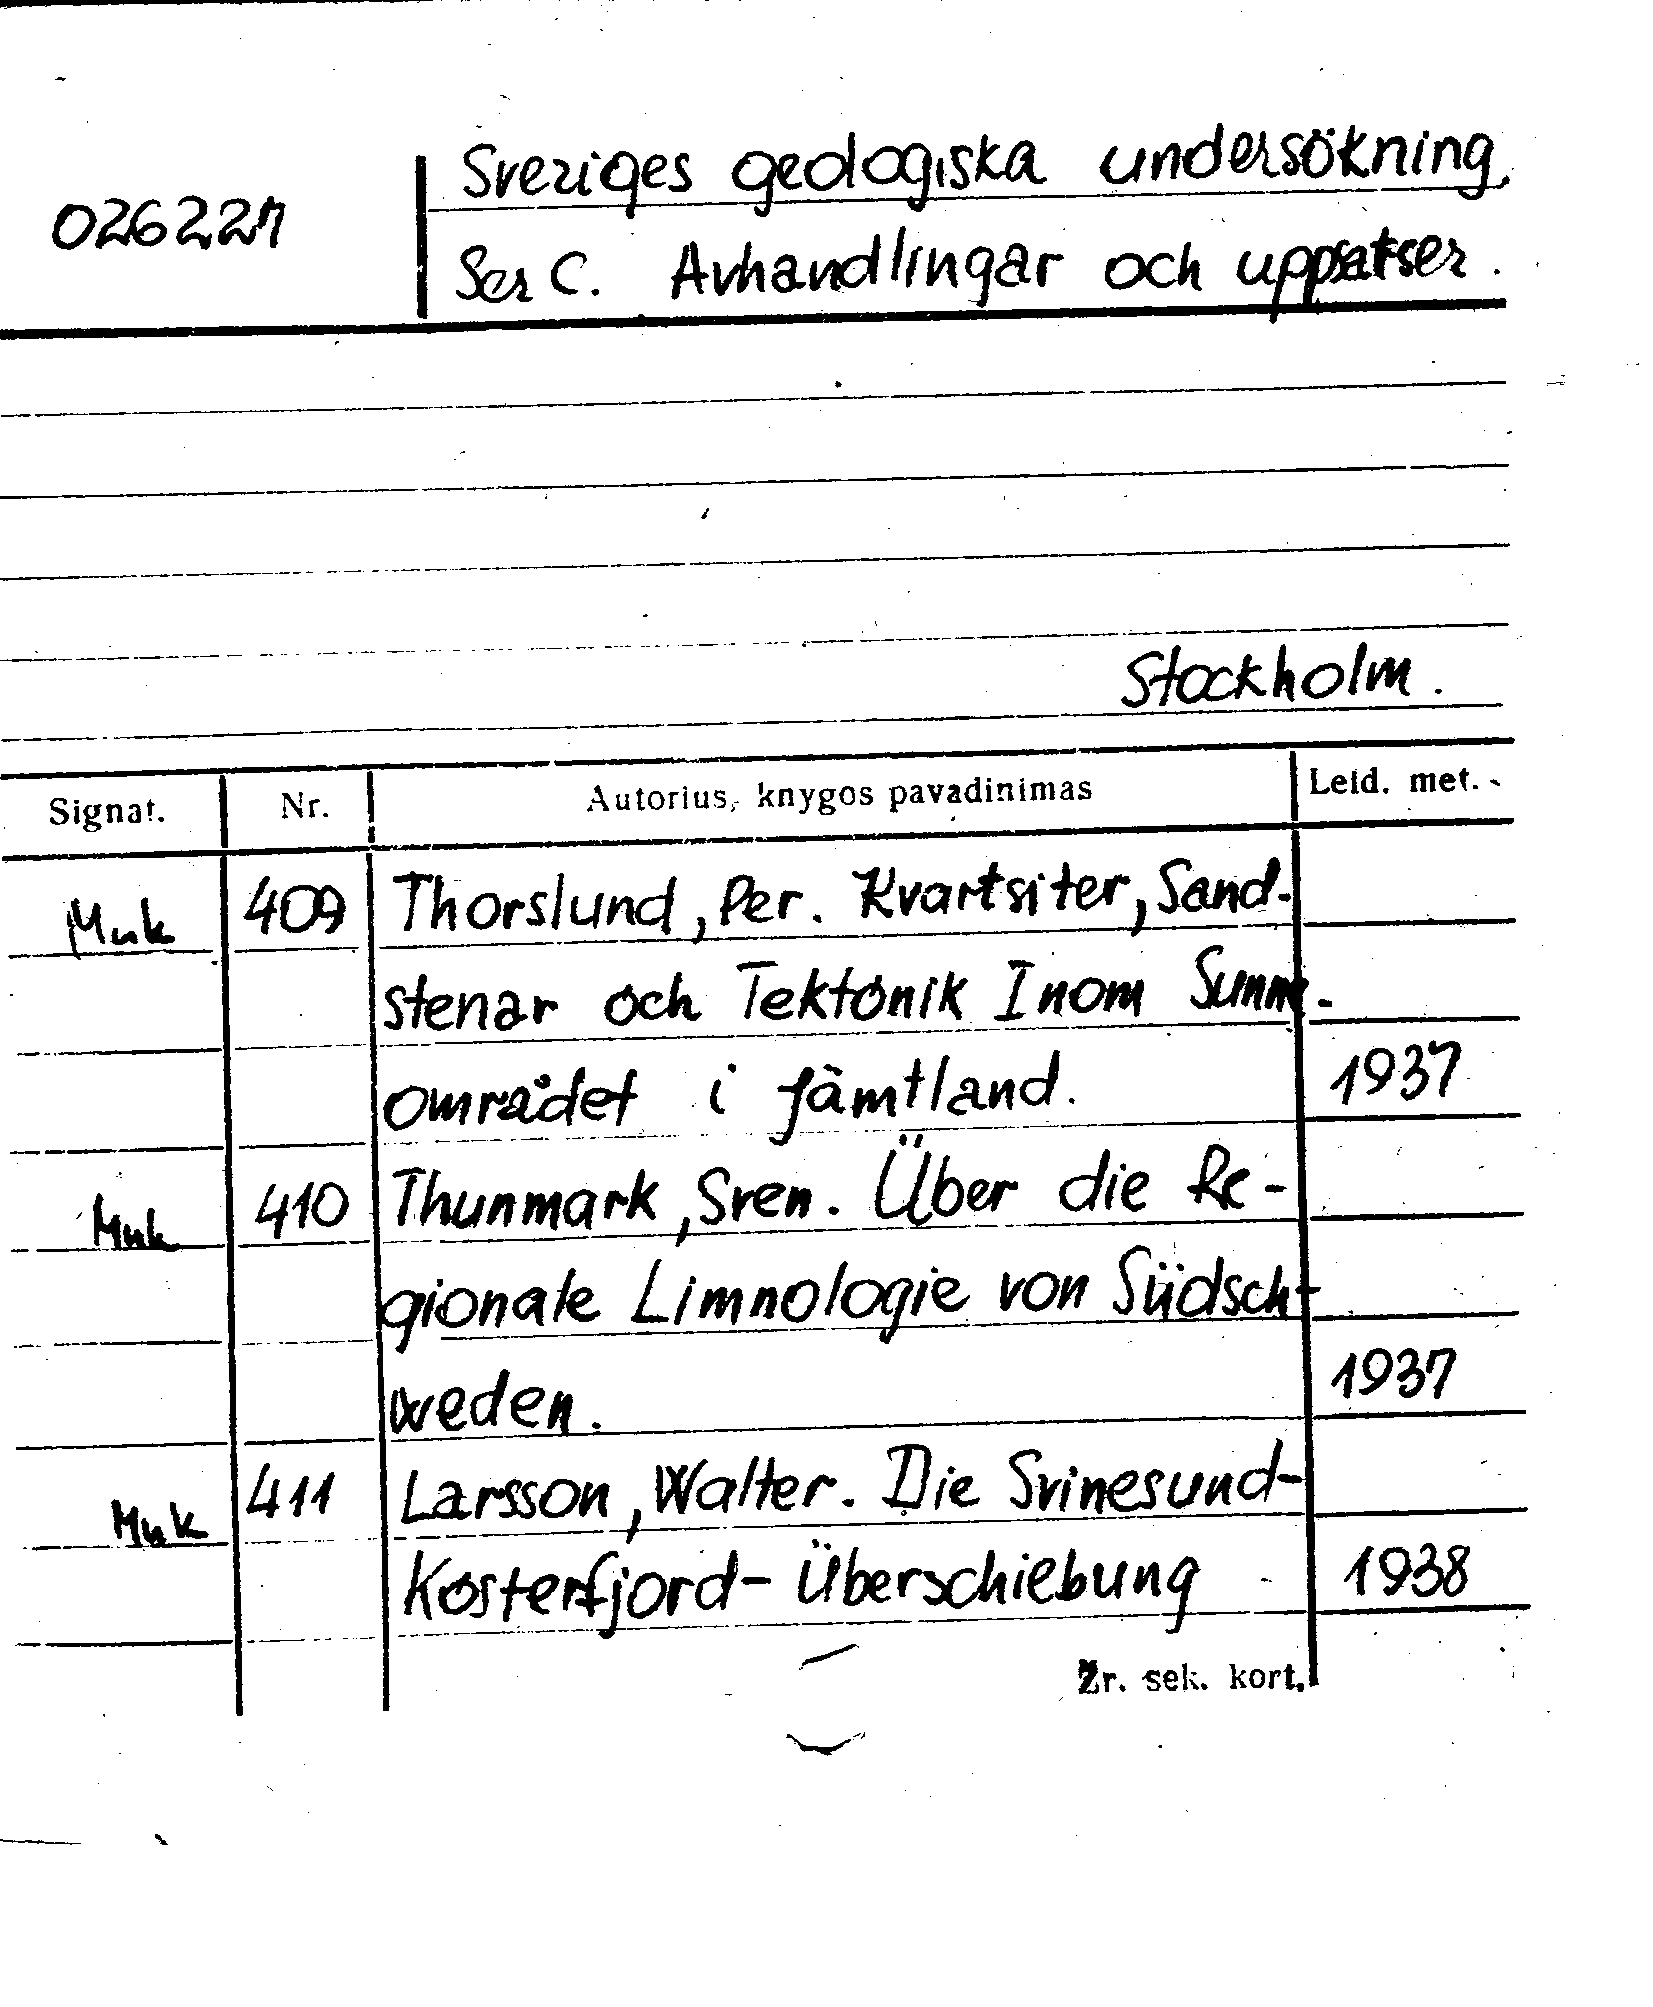 026227
Sveriges geologiska undersökning.
Ser C. Avhandlingar och uppsatser.
Stockholm.
Signat. Nr. Autorius, knygos pavadinimas Leid. met.
Muk 409 Thorslund, Per. Kvartsiter, Sand-
stenar och Tektonik Inom Sunne-
området i Jämtland. 1937
Muk 410 Thunmark, Sven. Über die Re-
gionale Limnologie von Südsch-
weden. 1937
Muk 411 Larsson, Walter. Die Svinesund-
Kosterfjord-Überschiebung 1938
Žr. sek. kort.